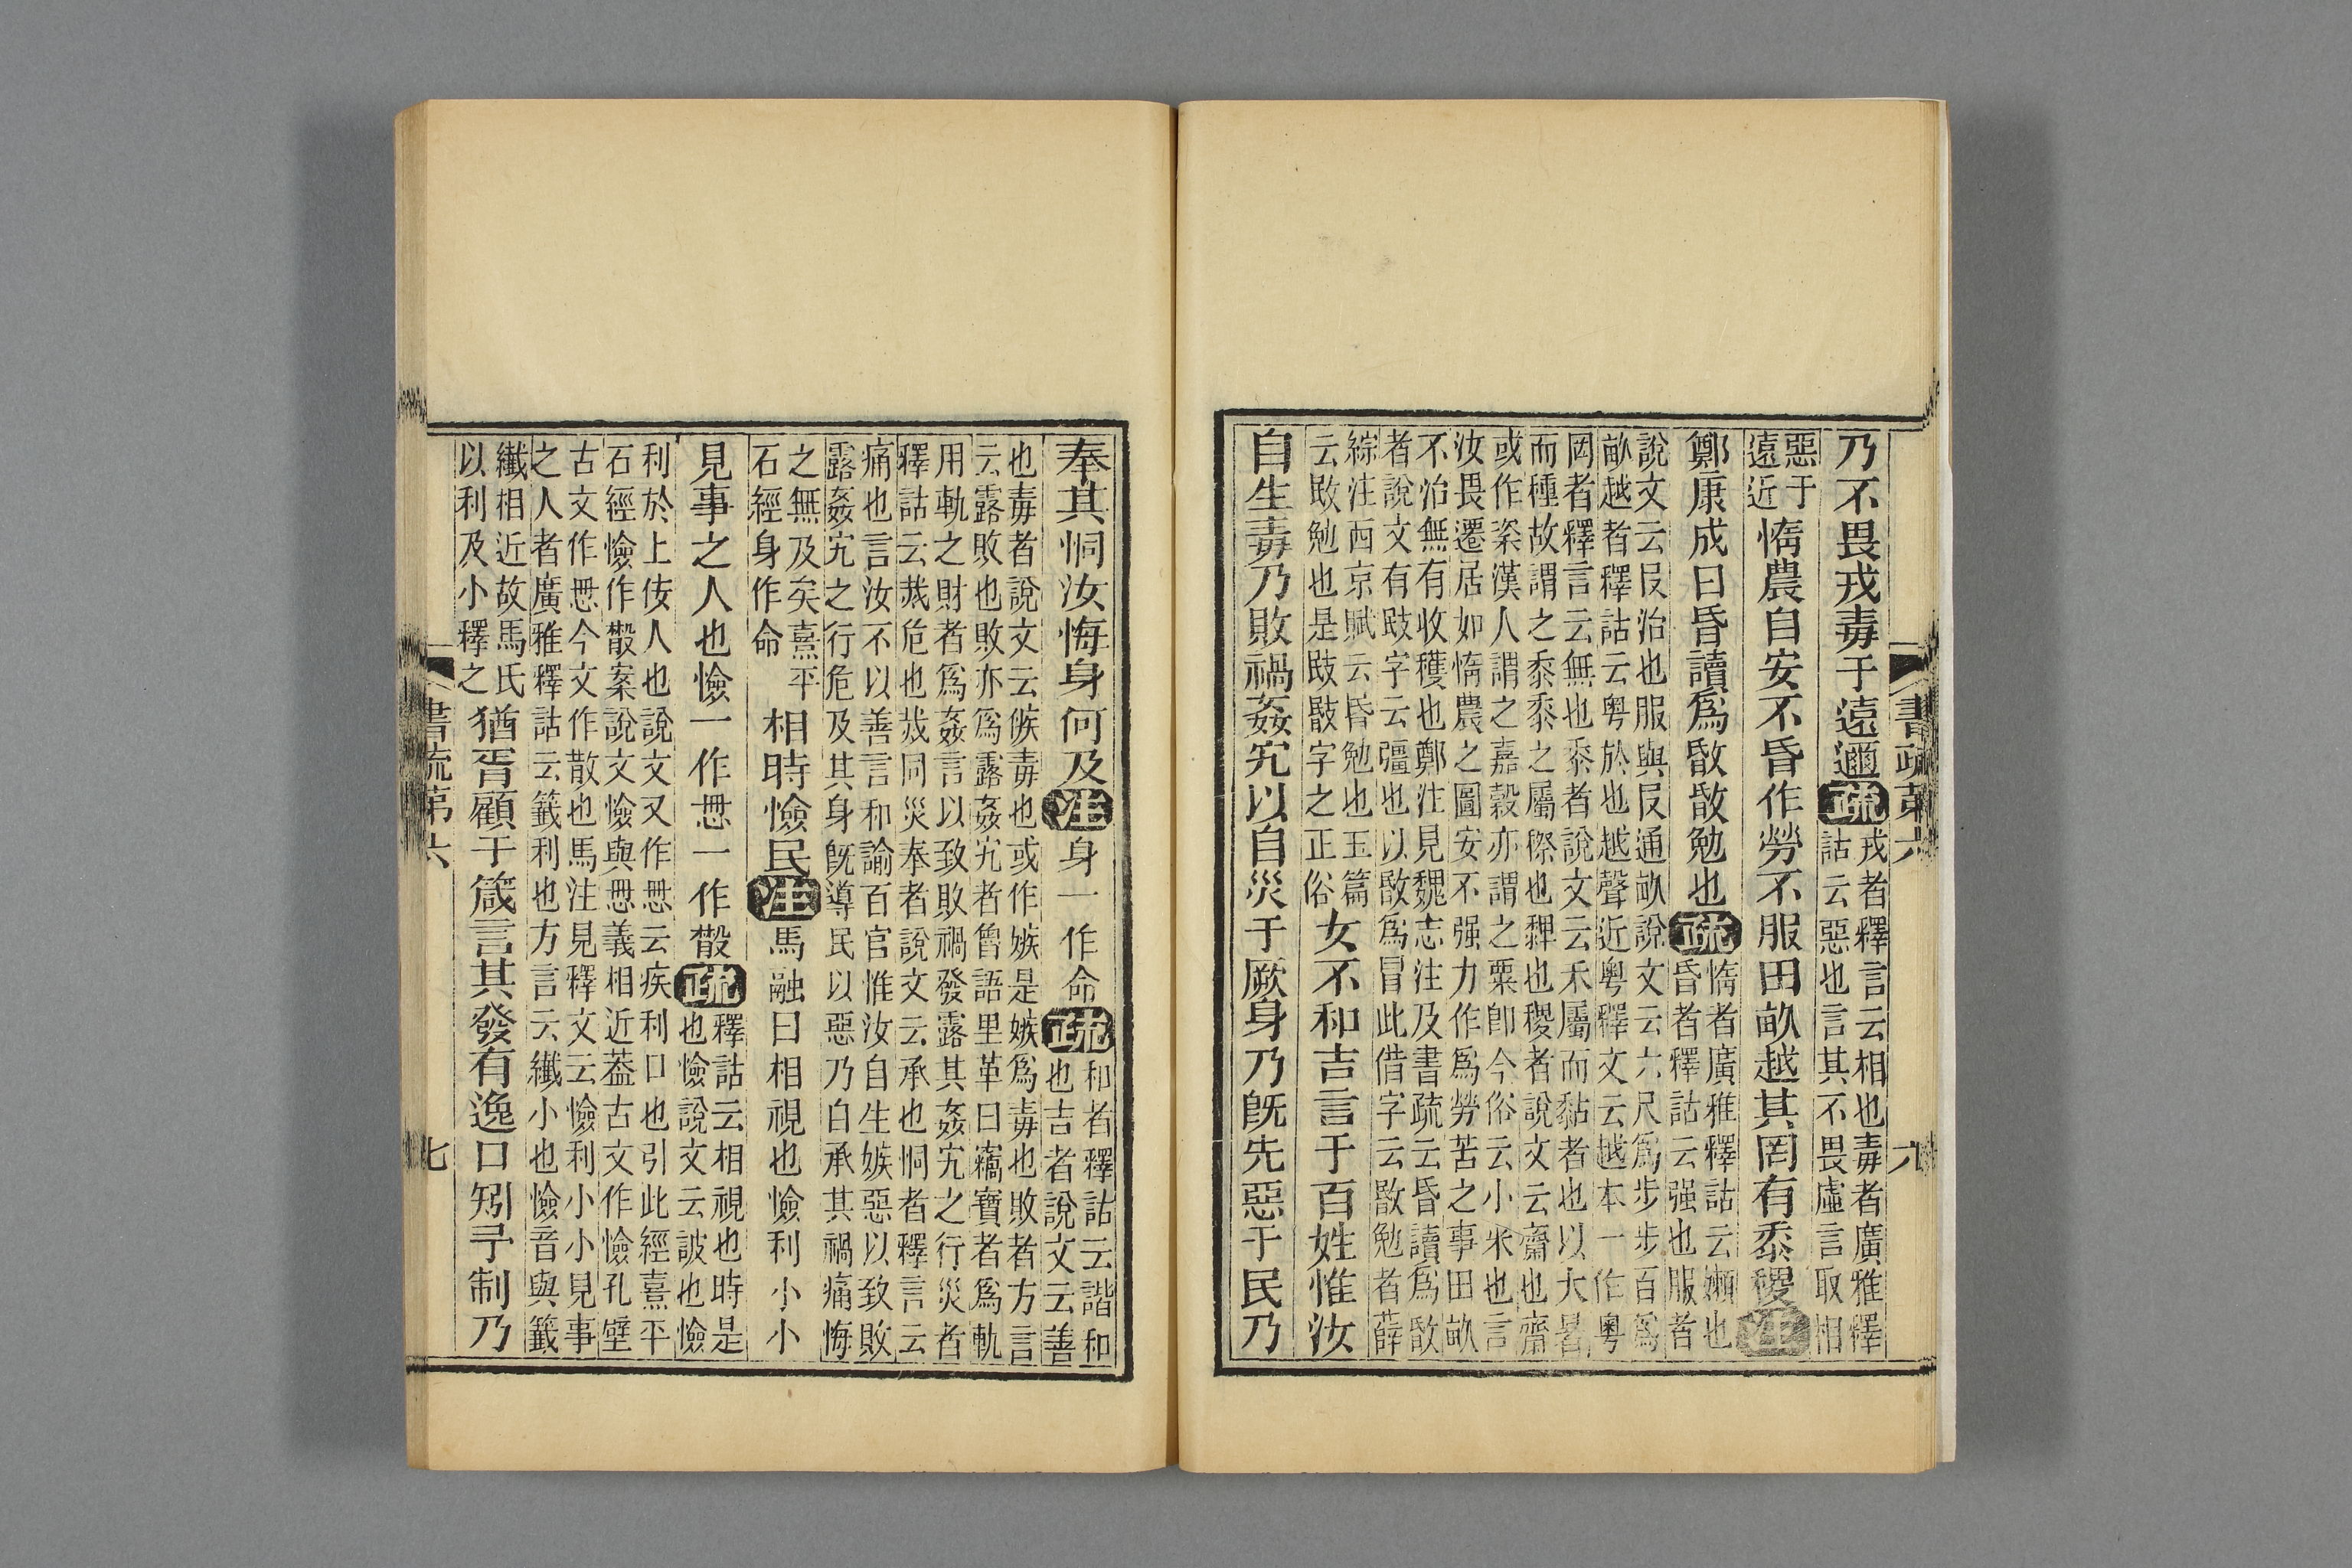 書疏第六
六
乃不畏戎毒于遠邇疏戎者釋言云相也毒者廣雅釋
詁云惡也言其不畏虛言取相
惡于
遠近
惰農自安不昏作勞不服田畝越其罔有黍稷注
鄭康成曰昏讀爲敃敃勉也疏惰者廣雅釋詁云嬾也
昏者釋詁云强也服者
說文云𠬝治也服與𠬝通畝說文云六尺爲步步百爲
畝越者釋詁云粵於也越聲近粵釋文云越本一作粵
罔者釋言云無也黍者說文云禾屬而黏者也以大暑
而種故謂之黍黍之屬穄也稗也稷者說文云齋也齋
或作粢漢人謂之嘉穀亦謂之粟卽今俗云小米也言
汝畏遷居如惰農之圖安不强力作爲勞苦之事田畝
不治無有收穫也鄭注見魏志注及書疏云昏讀爲敃
者說文有敃字云彊也以敃爲冒此借字云敃勉者薛
綜注西京賦云昏勉也玉篇
云敃勉也是敃敃字之正俗
女不和吉言于百姓惟汝
自生毒乃敗禍姦宄以自災于厥身乃旣先惡于民乃
奉其恫汝悔身何及注身一作命疏和者釋詁云諧和
也吉者說文云善
也毒者說文云㑵毒也或作嫉是嫉爲毒也敗者方言
云露敗也敗亦爲露姦宄者魯語里革曰竊寶者爲軌
用軌之財者爲姦言以致敗禍發露其姦宄之行災者
釋詁云烖危也烖同災奉者說文云承也恫者釋言云
痛也言汝不以善言和諭百官惟汝自生嫉惡以致敗
露姦宄之行危及其身旣導民以惡乃自承其禍痛悔
之無及矣熹平
石經身作命
相時憸民注馬融曰相視也憸利小小
見事之人也憸一作思一作散疏釋詁云相視也時是
也憸說文云詖也憸
利於上佞人也說文又作思云疾利口也引此經熹平
石經憸作散案說文憸與思義相近葢古文作憸孔壁
古文作思今文作散也馬注見釋文云憸利小小見事
之人者廣雅釋詁云籤利也方言云纖小也憸音與籤
纖相近故馬氏
以利及小釋之
猶胥顧于箴言其發有逸口矧予制乃
書疏第六
七